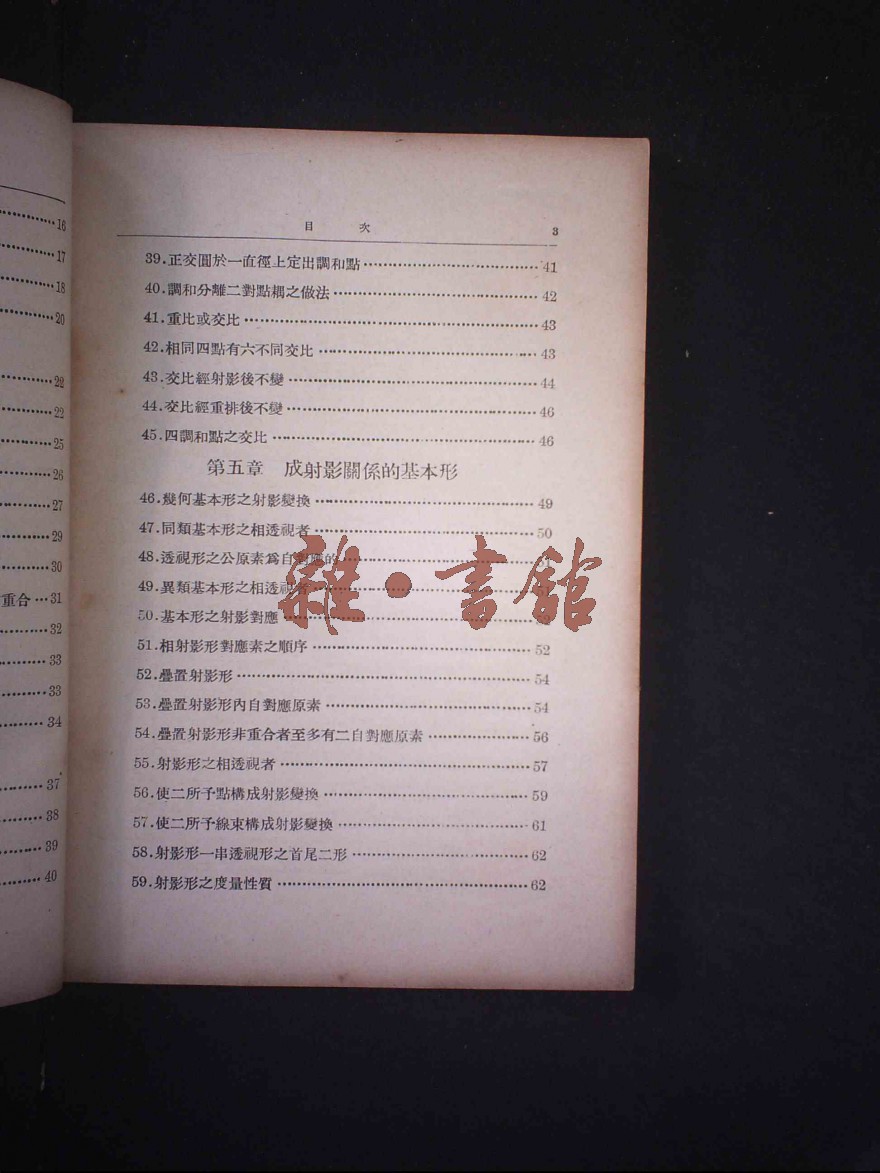 16
17
18
20
22
22
25
26
27
29
30
重合…31
32
33
33
34
37
38
39
40
目 次 3
39.正交圓於一直徑上定出調和點 41
40.調和分離二對點耦之做法 42
41.重比或交比 43
42.相同四點有六不同交比 43
43.交比經射影後不變 44
44.交比經重排後不變 46
45.四調和點之交比 46
第五章 成射影關係的基本形
46.幾何基本形之射影變換 49
47.同類基本形之相透視者 50
48.透視形之公原素爲自對應的 51
49.異類基本形之相透視者
50.基本形之射影對應
51.相射影形對應素之順序 52
52.疊置射影形 54
53.疊置射影形內自對應原素 54
54.疊置射影形非重合者至多有二自對應原素 56
55.射影形之相透視者 57
56.使二所予點構成射影變換 59
57.使二所予線束構成射影變換 61
58.射影形一串透視形之首尾二形 62
59.射影形之度量性質 62
雜·書館